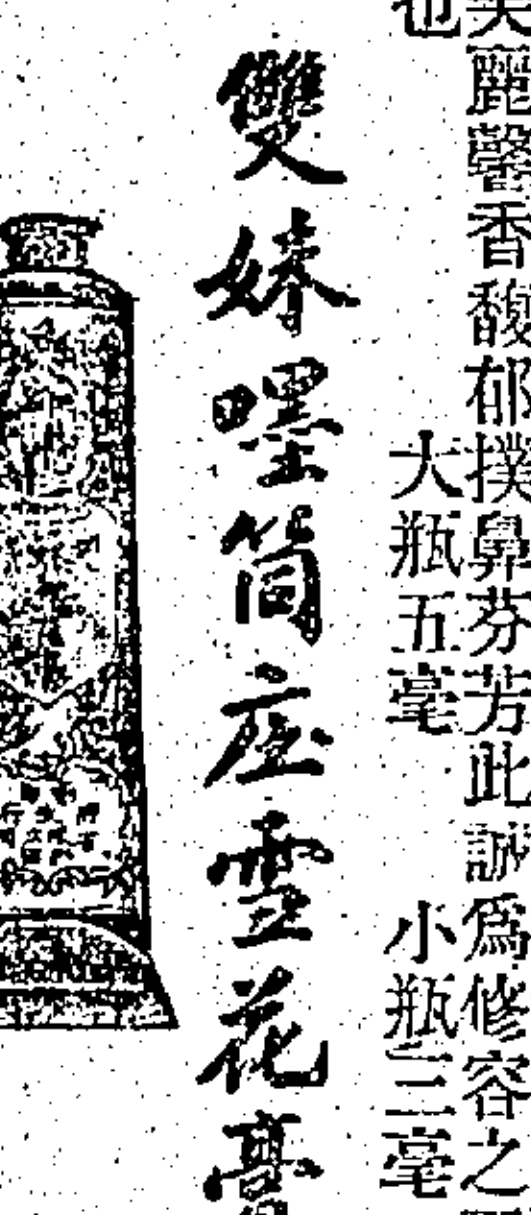 麗馨香馥郁撲鼻芬芳此誠爲修容之
也
大瓶五毫　小瓶三毫
雙妹嘿筒庄雪花膏